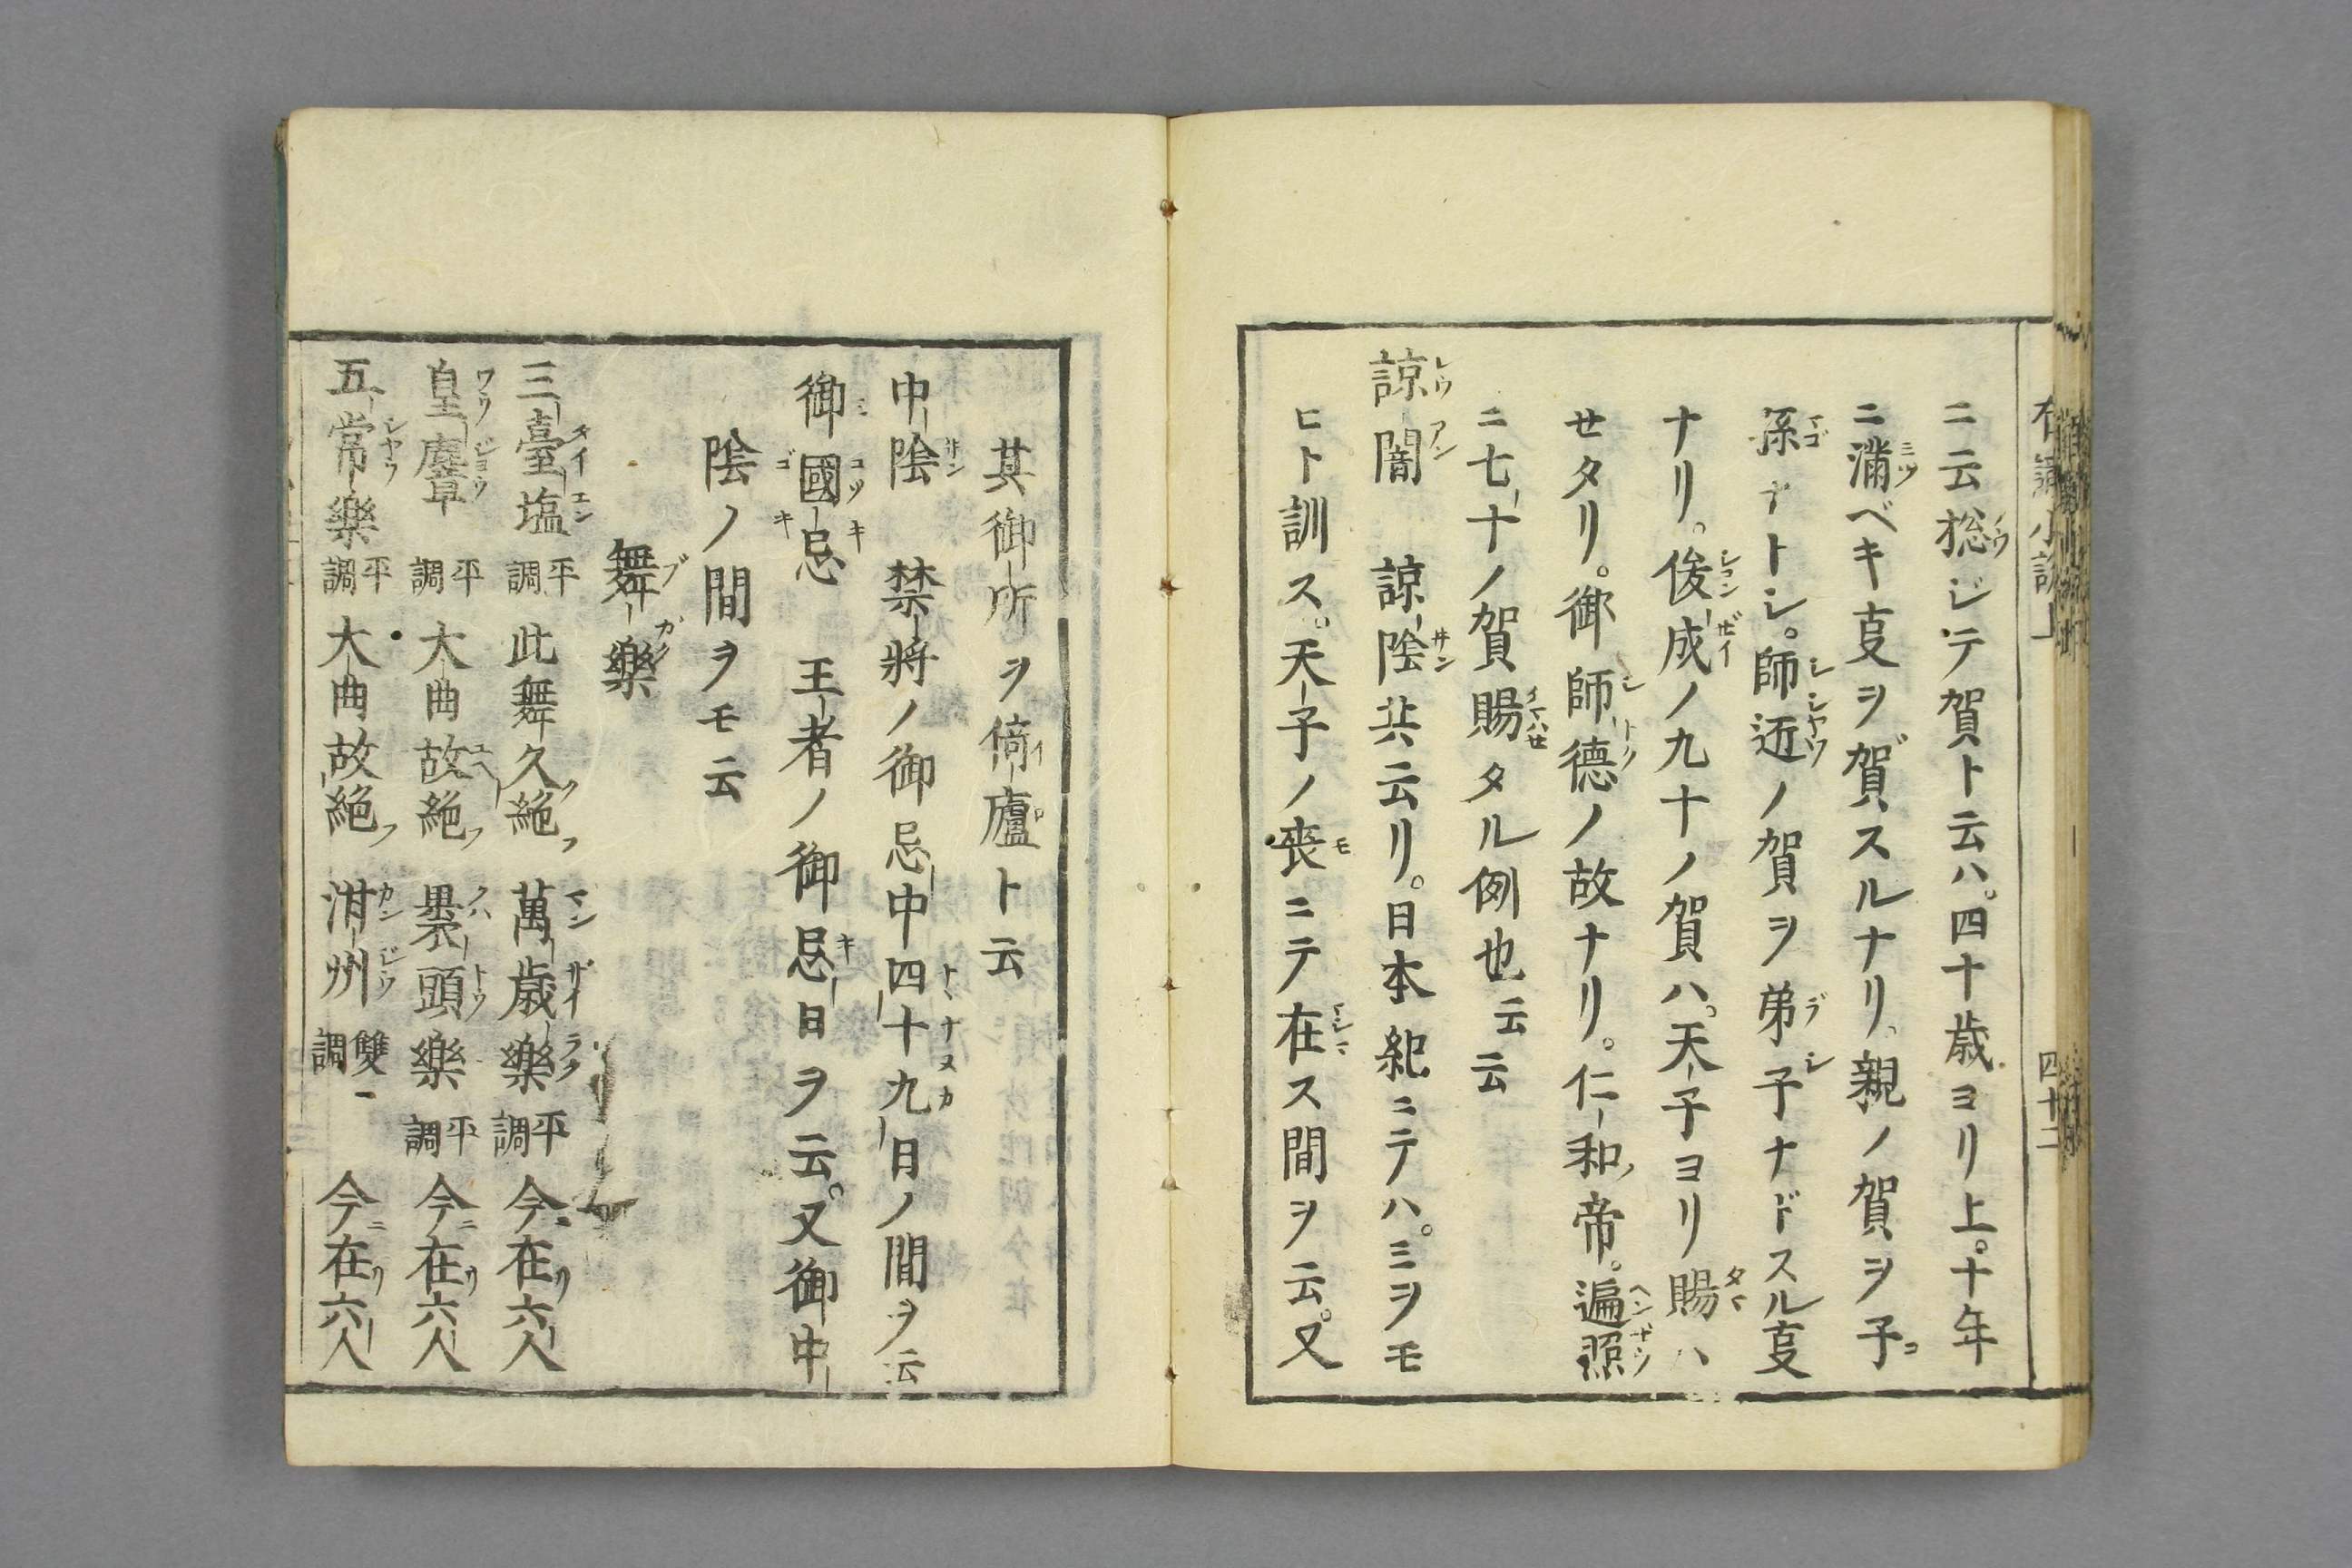 ニ云。総ジテ賀ト云ハ。四十歳ヨリ上。十年
ニ満ベキ㕝ヲ賀スルナリ。親ノ賀ヲ子
孫ナトシ。師匠ノ賀ヲ弟子ナドスル㕝
ナリ。俊成ノ九十ノ賀ハ。天子ヨリ賜ハ
セタリ。御師徳ノ故ナリ。仁和帝。遍照
ニ七十ノ賀賜タル例也云云
諒闇 諒陰共云リ。日本紀ニテハ。ミヲモ
ヒト訓ス。天子ノ喪ニテ在ス間ヲ云。又
四十二
其御所ヲ倚廬ト云
中陰 禁将ノ御忌中四十九日ノ間ヲ云
御國忌 王者ノ御忌日ヲ云。又御中
陰ノ間ヲモ云
舞樂
三臺塩 平調 此舞久絶 萬歳樂 平調 今在六人
皇麞 平調 大曲故絶 褁頭樂 平調 今在六人
五常樂 平調 大曲故絶 泔州 雙調 今在六人